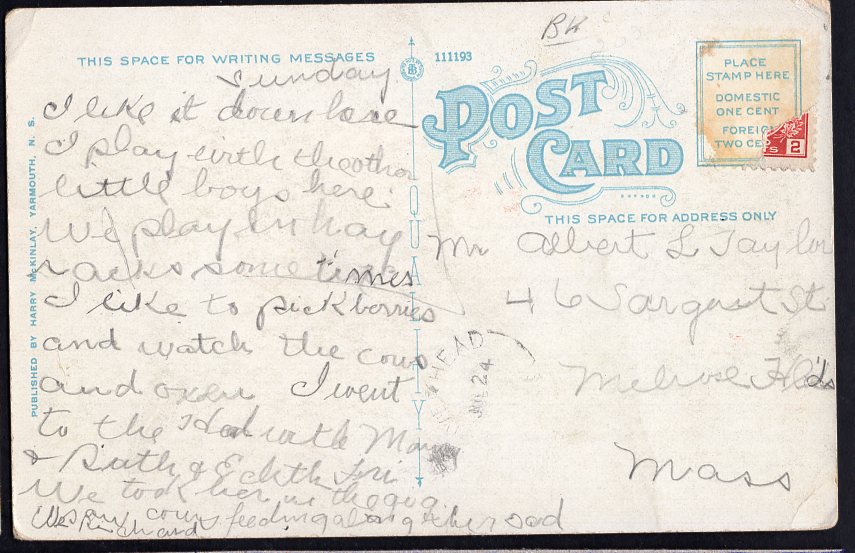 BK
THIS SPACE FOR WRITING MESSAGES
111193
POST CARD
PLACE
STAMP HERE
DOMESTIC
ONE CENT
FOREIGN
TWO CE
S 2
THIS SPACE FOR ADDRESS ONLY
QUALITY
PUBLISHED BY HARRY McKINLAY, YARMOUTH, N. S.
Sunday
I like it down here
I play with the other
little boys here
We play in hay
racks sometimes
I like to pick berries
and watch the cows
and oxen I went
to the Hed with Mam
& Ruth & Edith Fri
We took her in the
We saw cows feeding along the road
Richard
Mr Albert L Taylor
46 Sargent St
Melrose H'lds
Mass
HEAD
JUL 24